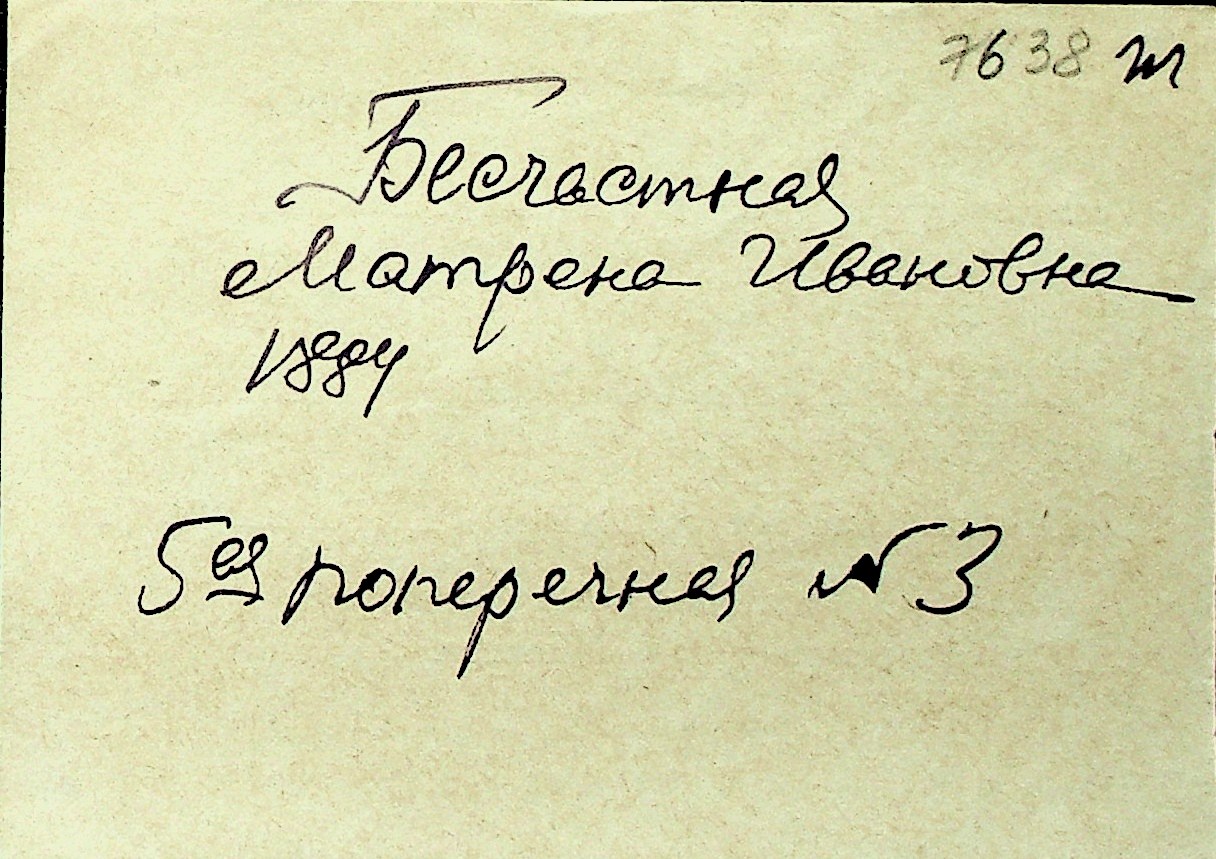 7638 м
Бесчастная
Матрена Ивановна
5ая поперечная N 3